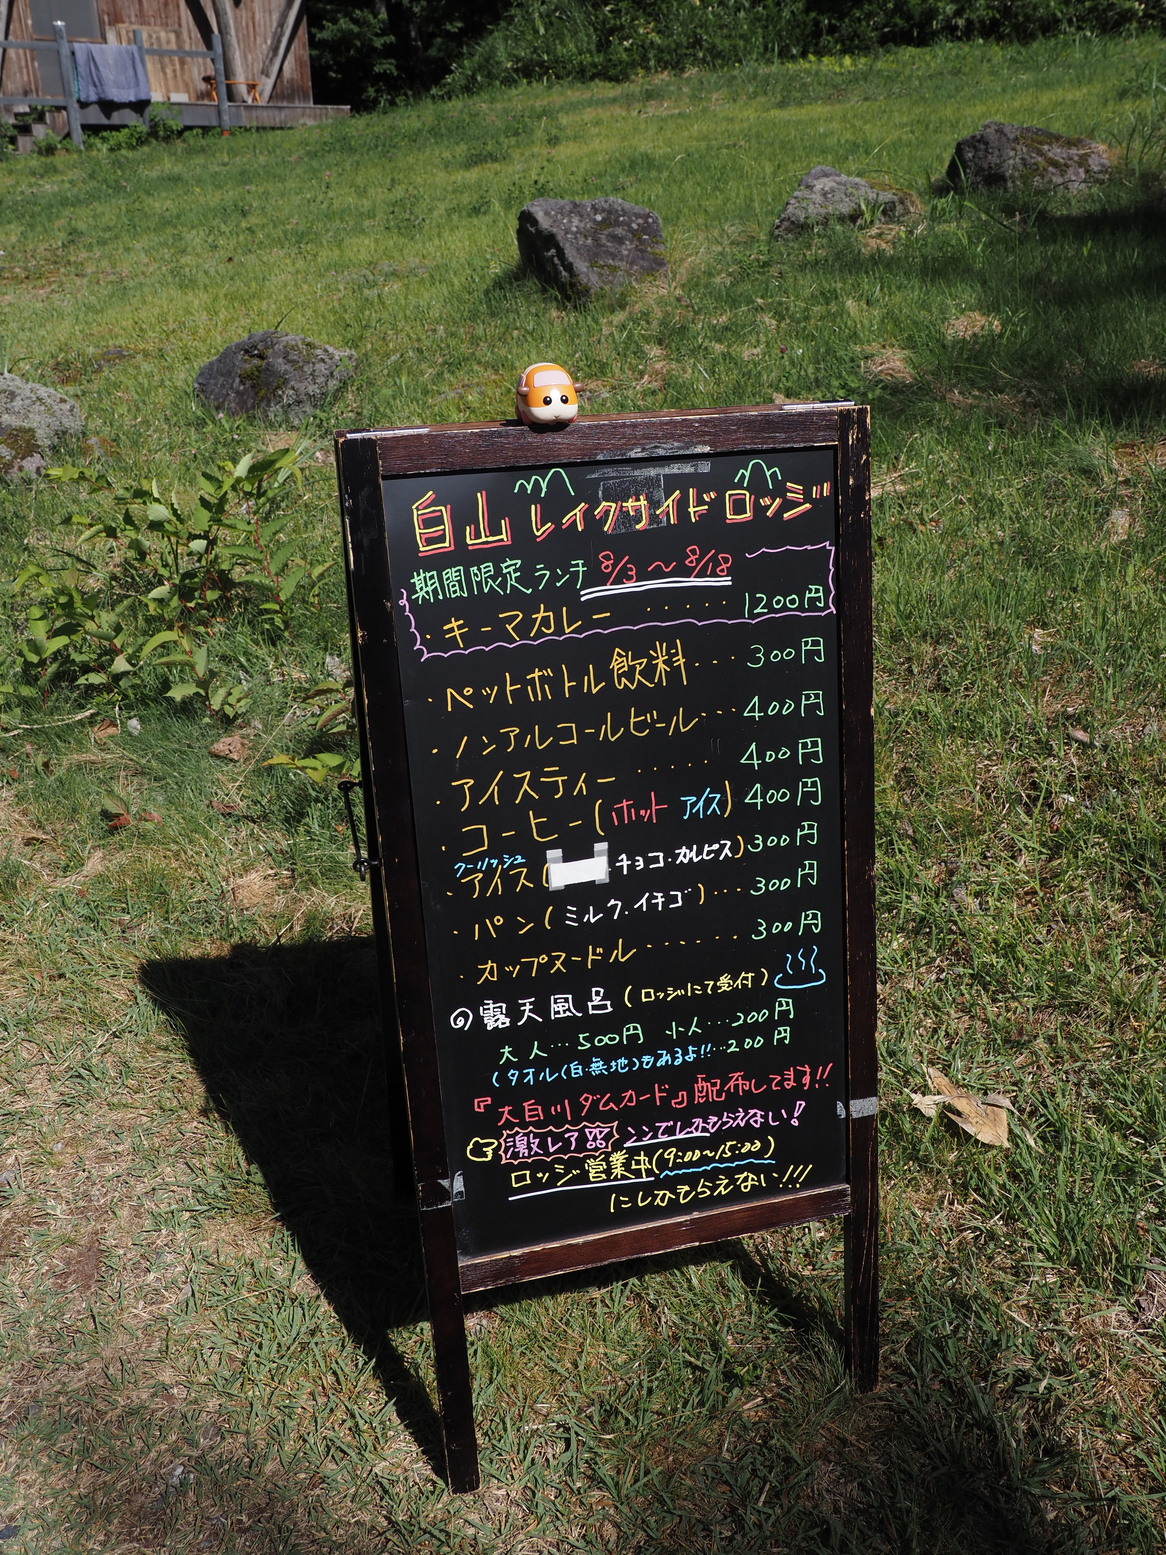 白山レイクサイドロッジ
期間限定ランチ 8/3～8/18
・キーマカレー ・・・・・・ 1200円
・ペットボトル飲料・・・ 300円
・ノンアルコールビール・・・ 400円
・アイスティー ・・・・・ 400円
・コーヒー(ホット アイス) 400円
クーリッシュ
・アイス( チョコ・カルピス) 300円
・パン(ミルク・イチゴ)・・・ 300円
・カップヌードル・・・・・・ 300円
◎露天風呂(ロッジにて受付)
大人…500円 小人…200円
(タオル(白・無地)もあるよ!!…200円
『大白川ダムカード』配布してます!!
激レア ココでしかもらえない!
ロッジ営業中(9:00～15:00)
にしかもらえない!!!